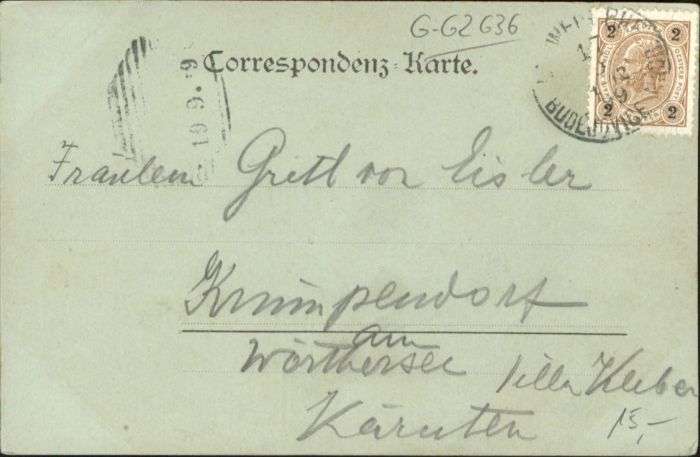 G-G2 636
Correspondenz-Karte.
2 2
2 2
BUDĚJOVICE
19.9.9
Fräulein Gretl von Eisler
Krumpendorf
am
Wörthersee Villa Kleber
Kärnten
15,-